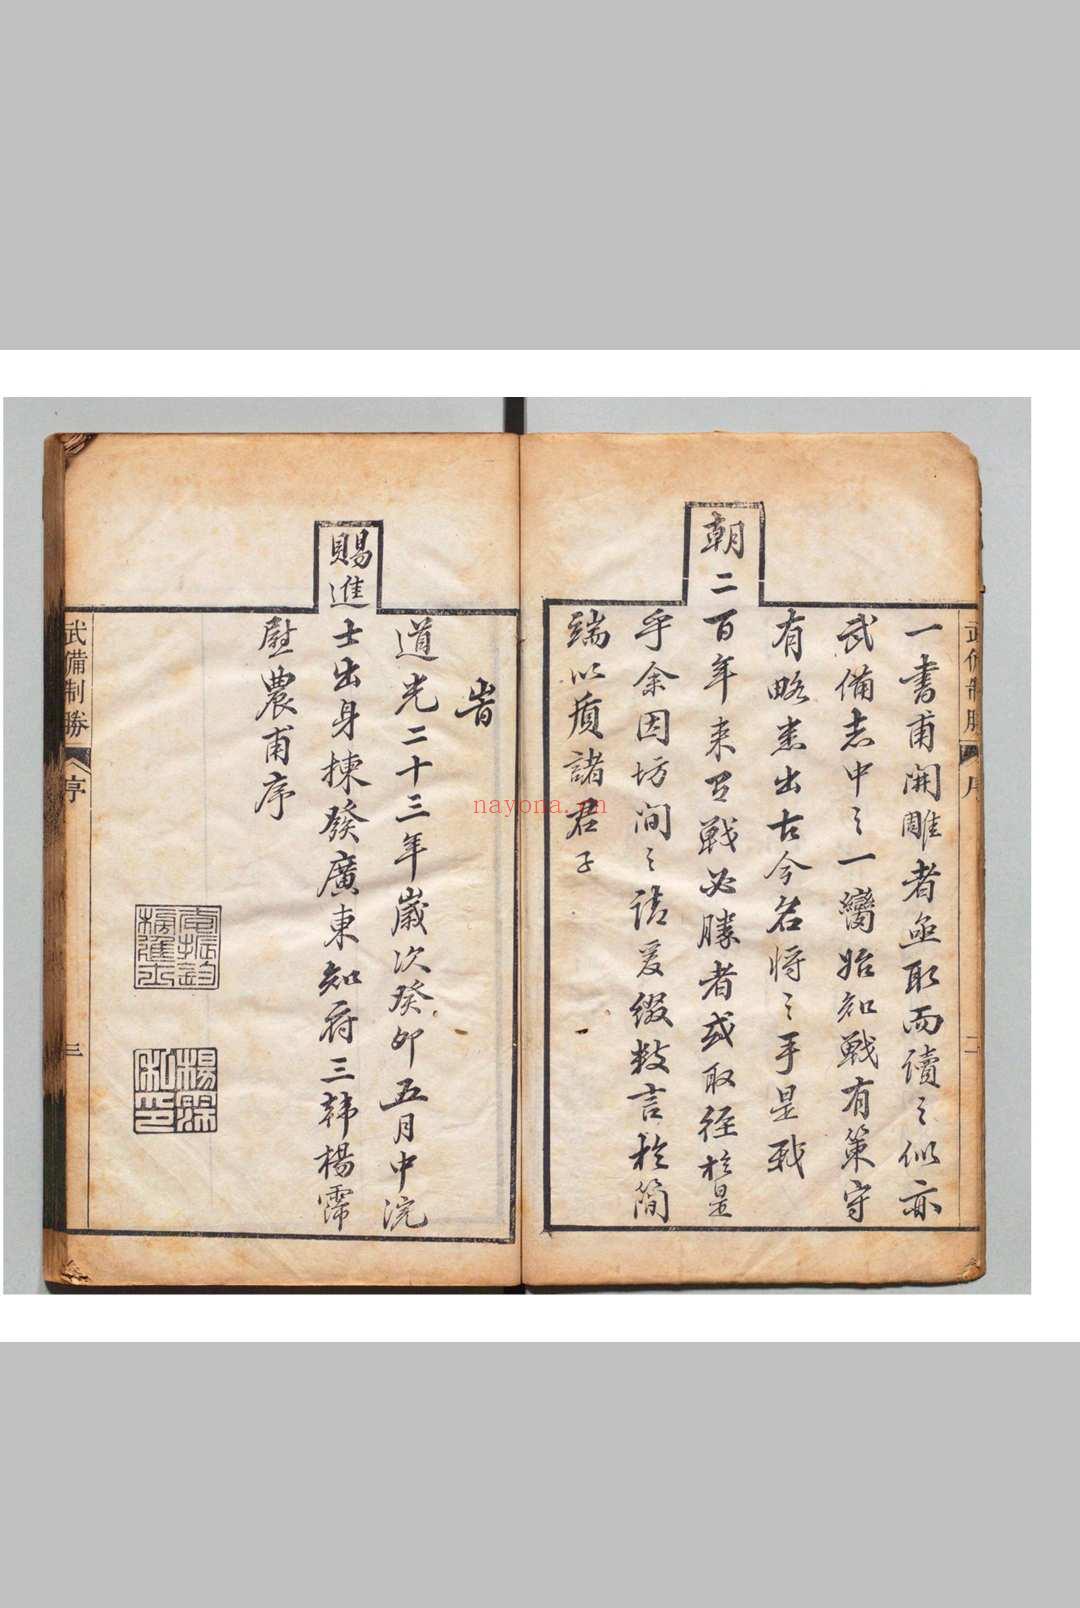 一書甫開雕者亟取而讀之似亦
武備志中之一臠始知戰有策守
有略悉出古今名將之手是我
朝二百年来百戰必勝者或取径於是
乎余因坊间之請爰綴数言於簡
端以質諸君子
武備制勝
序
二
旹
道光二十三年歲次癸卯五月中浣
賜進士出身揀發廣東知府三韩楊霈
慰農甫序
武備制勝
序
三
楊霈
私印
nayona.cn